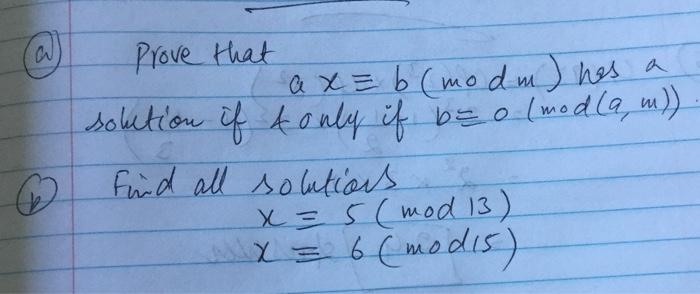 (a) Prove that
a x ≡ b (mod m) has a
solution if & only if b ≡ 0 (mod (a, m))
(b) Find all solutions
x ≡ 5 (mod 13)
x ≡ 6 (mod 15)